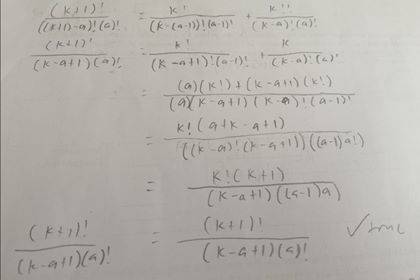 (k+1)! / ((k+1)-a)!(a)! = k! / (k-(a-1))!(a-1)! + k! / (k-a)!(a)!
(k+1)! / (k-a+1)(a)! = k! / (k-a+1)!(a-1)! + k / (k-a)!(a)!
= (a)(k!) + (k-a+1)(k!) / (a)(k-a+1)(k-a)!(a-1)!
= k!(a+k-a+1) / ((k-a)!(k-a+1))((a-1)a!)
= k!(k+1) / (k-a+1)((a-1)a)
(k+1)! / (k-a+1)(a)! = (k+1)! / (k-a+1)(a)! ✓true